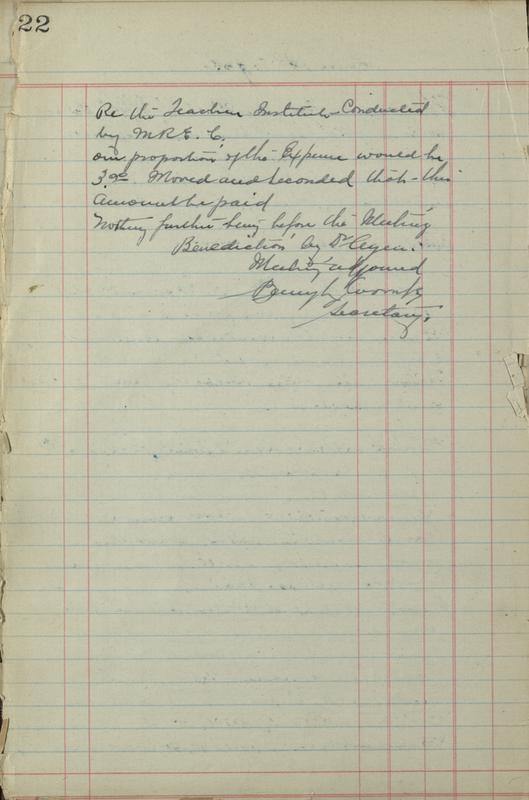 22
Re the Teachers Institute Conducted
by M.R.E.C.
our proportion of the Expense would be
3.00 Moved and seconded that this
amount be paid
Nothing further being before the Meeting
Benediction by Dr
Meeting adjourned
Secretary.